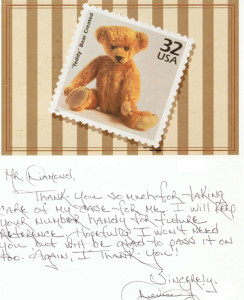 "Teddy" Bear Created
32
USA
Mr. Diamond,
Thank you so much for taking
care of my case for me. I will keep
your number handy for future
reference. Hopefully I won't need
you but will be glad to pass it on
too. Again, I thank you!
Sincerely,